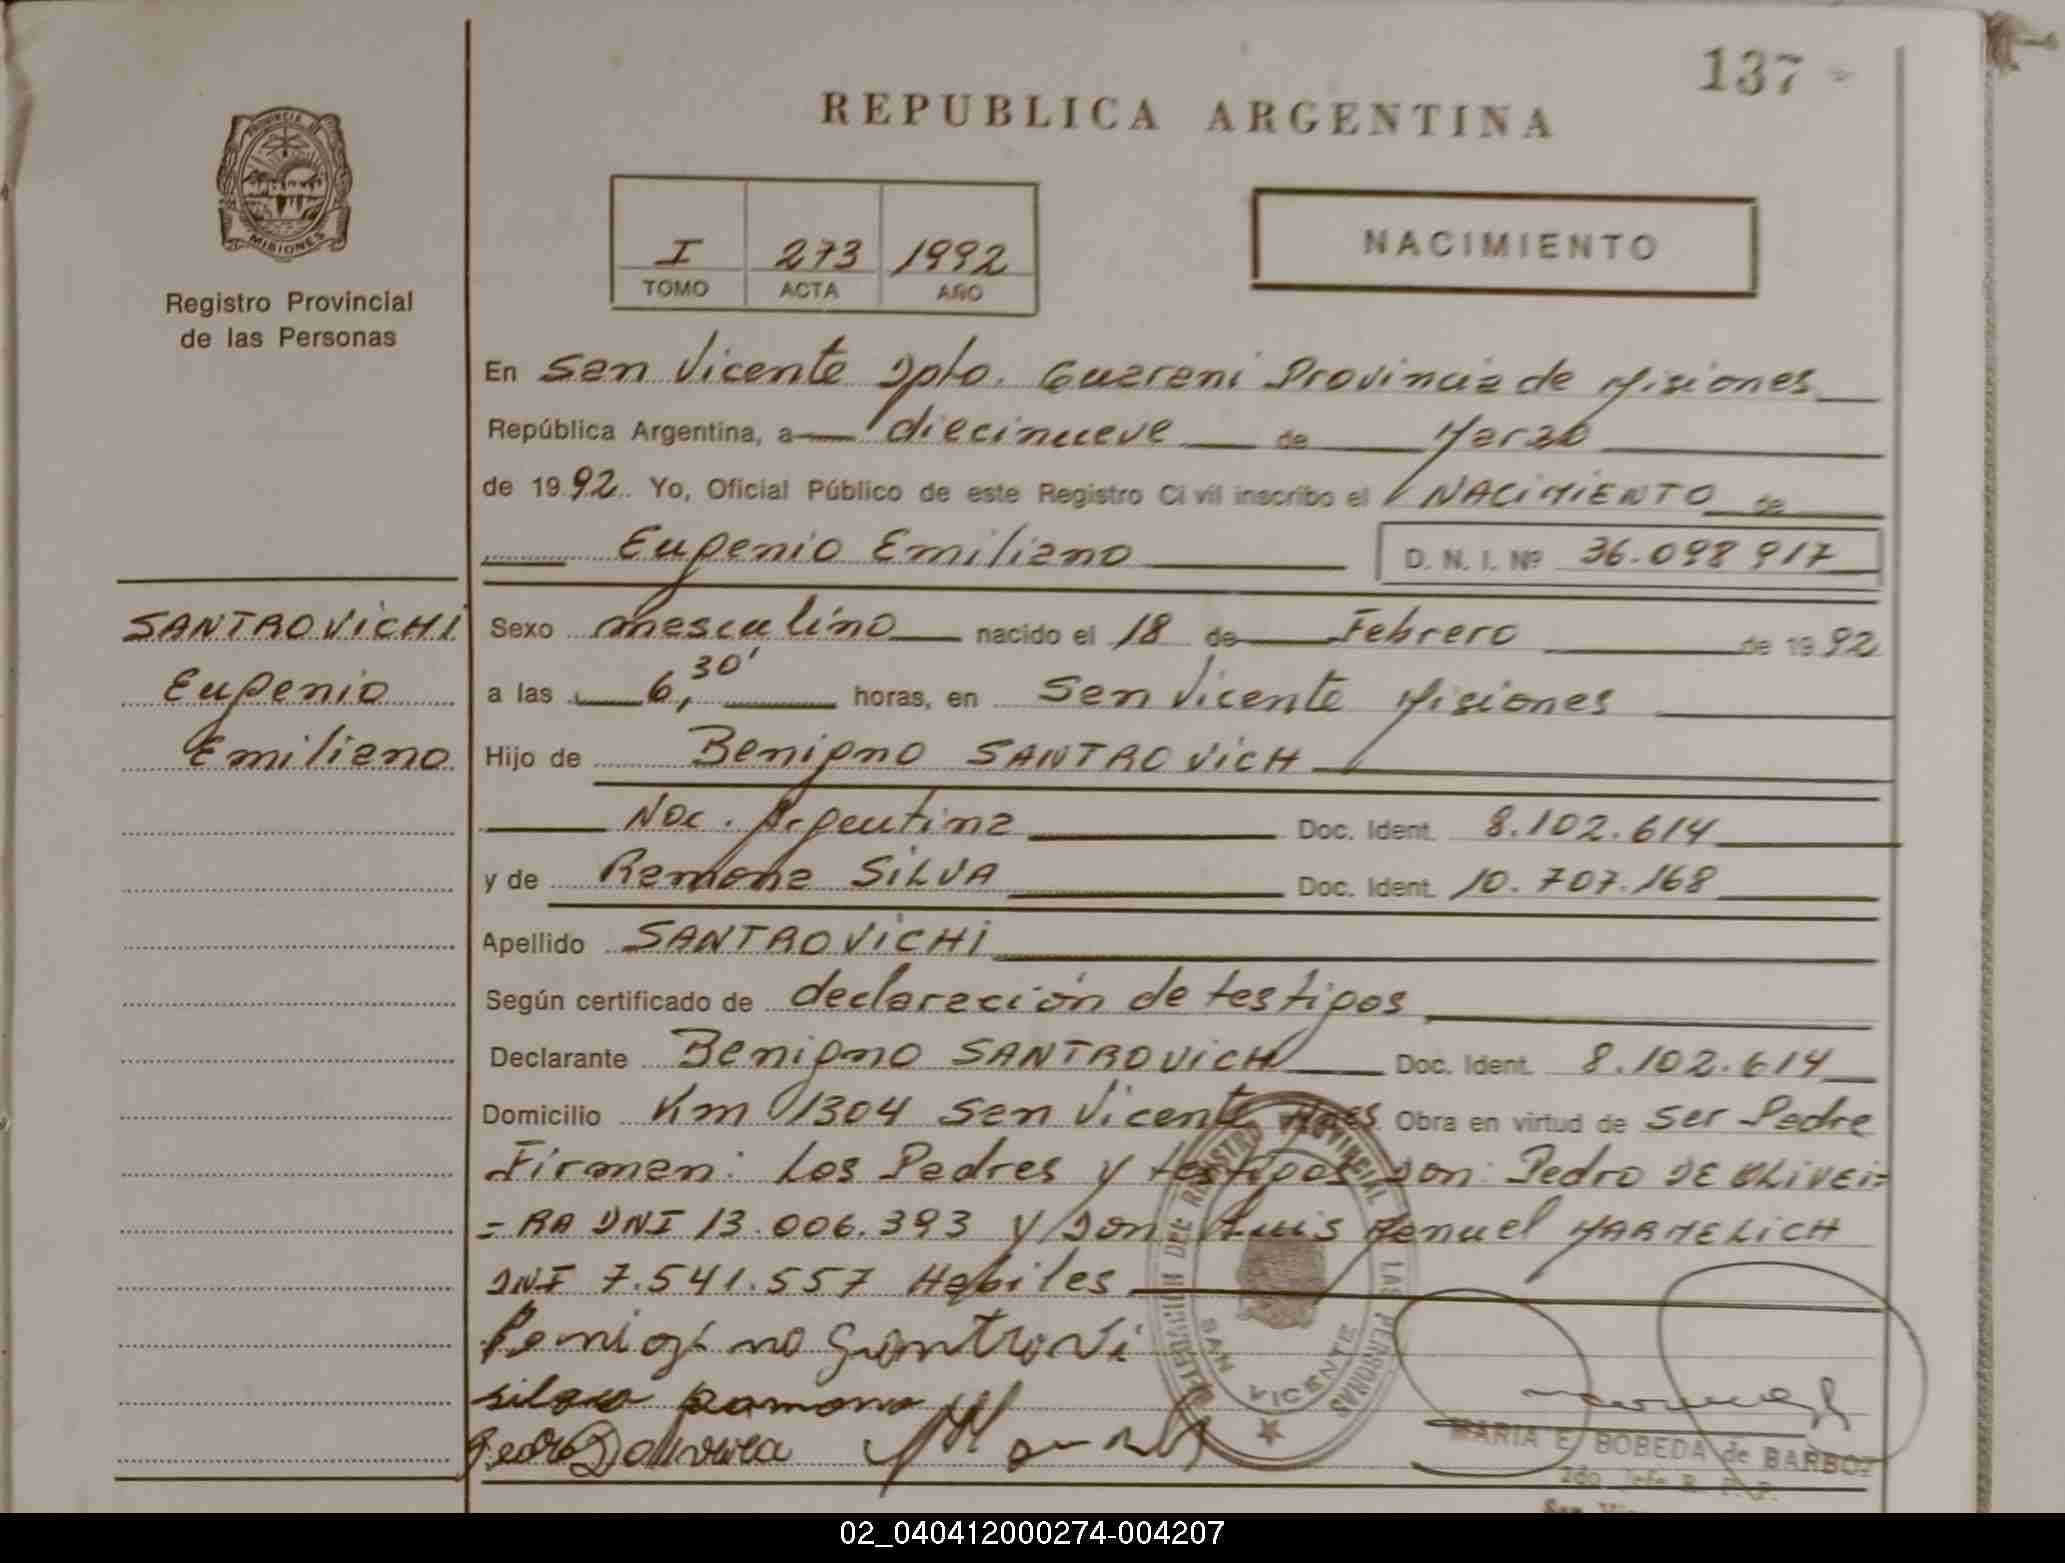 137
REPUBLICA ARGENTINA
PROVINCIA DE
MISIONES
Registro Provincial
de las Personas
I 273 1992
TOMO ACTA AÑO
NACIMIENTO
En San Vicente Dpto. Guarani Provincia de Misiones
República Argentina, a diecinueve de Marzo
de 1992. Yo, Oficial Público de este Registro Civil inscribo el NACIMIENTO de
Eugenio Emiliano D. N. I. Nº 36.098 917
SANTROVICHI
Eugenio
Emiliano
Sexo masculino nacido el 18 de Febrero de 1992
a las 6,30' horas, en San Vicente Misiones
Hijo de Benigno SANTROVICH
Nac. Argentina Doc. Ident. 8.102.614
y de Ramona SILVA Doc. Ident. 10.707.168
Apellido SANTROVICHI
Según certificado de declaración de testigos
Declarante Benigno SANTROVICH Doc. Ident. 8.102.614
Domicilio Km 1304 San Vicente Mnes Obra en virtud de ser Padre
Firman: Los Padres y testigos Don: Pedro DE OLIVEI=
=RA DNI 13.006.393 y Don Luis Manuel MARMELICH
DNI 7.541.557 Habiles
silva Ramona
DELEGACION DEL REGISTRO PROVINCIAL DE LAS PERSONAS
SAN VICENTE
MARIA E. BOBEDA de BARBOZ
2do. Jefe R. P. P.
02_040412000274-004207